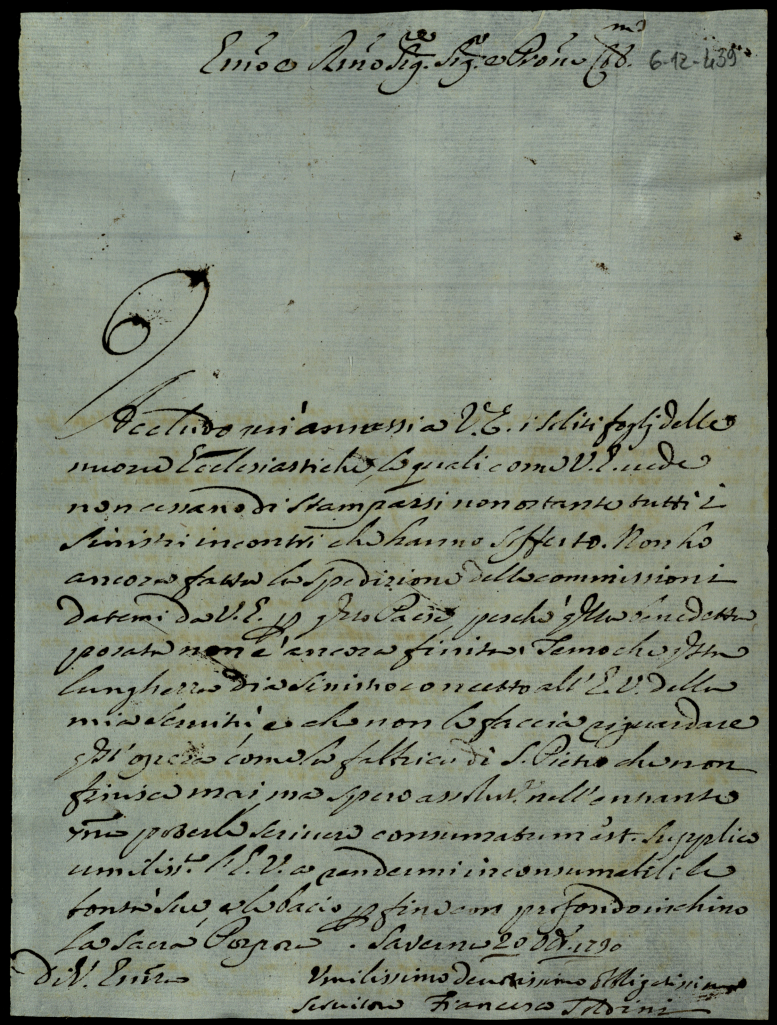 Emo e Rmo Sig.re Sig.r e Pron Col.mo 6-12-439
Accludo qui annessi a V. E. i soliti foglj delle
nuove Ecclesiastiche, le quali come V. E. vede
non cessano di stamparsi nonostante tutti i
sinistri incontri che hanno sofferto. Non ho
ancora fatta la spedizione delle commissioni
datemi da V. E. p qsto Paese, perchè qlla benedetta
posata non è ancora finita. Temo che qsta
lunghezza dia sinistro concetto all' E. V. della
mia servitù e che non le faccia riguardare
qst' opera come la fabbrica di S. Pietro che non
finisce mai ma spero assolut.e nell' entrante
poterle scrivere consumatum est. Supplico
umiliss.e l' E. V. a rendermi inconsumabili le
bontà sue, e le bacio p fine con profondo inchino
la Sacra Porpora. 20 1790
Di V. Emza Umilissimo Devotissimo Obbligatissimo
Servitore Francesco